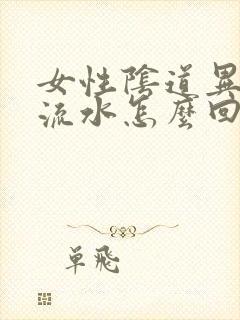 女性陰道異
流水怎麼回
單飛